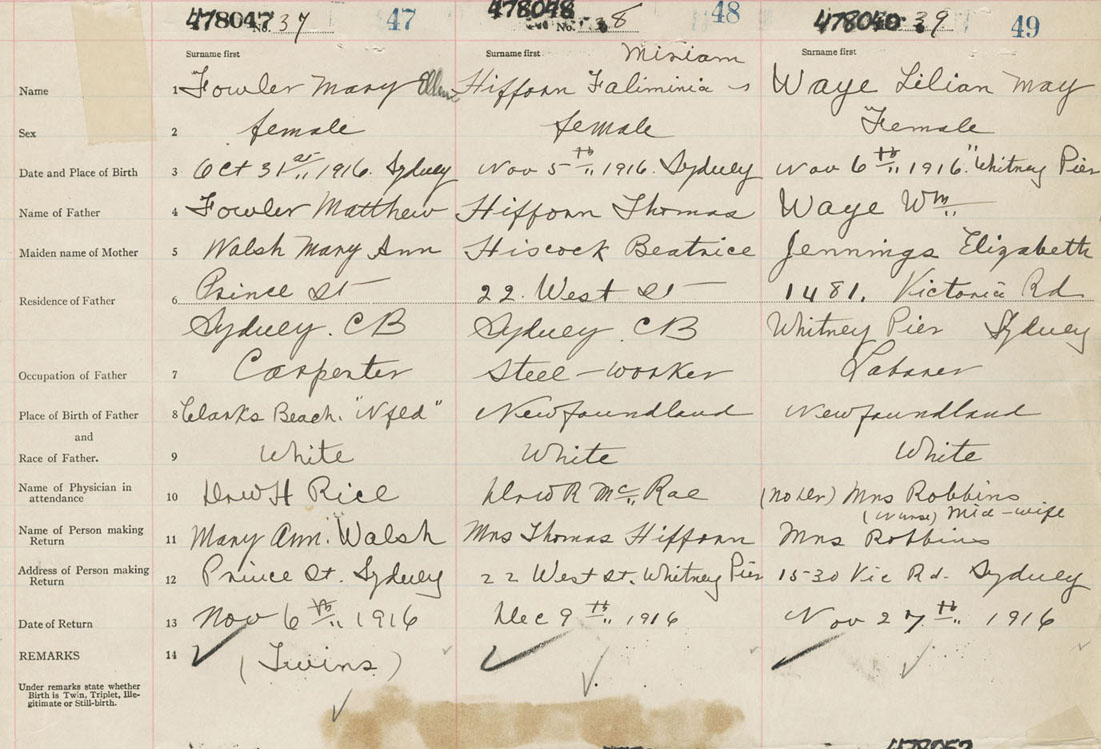 478047 No. 37 47 478048 No. 38 48 478040 39 49
Surname first Surname first Miriam Surname first
Name 1 Fowler Mary Ellen Hifforn Faliminia Waye Lilian May
Sex 2 female female Female
Date and Place of Birth 3 Oct 31st, 1916. Sydney Nov 5th, 1916. Sydney Nov 6th, 1916. "Whitney Pier
Name of Father 4 Fowler Matthew Hifforn Thomas Waye Wm.
Maiden name of Mother 5 Walsh Mary Ann Hiscock Beatrice Jennings Elizabeth
Residence of Father 6 Prince St 22. West St 1481. Victoria Rd
Sydney. CB Sydney. CB Whitney Pier Sydney
Occupation of Father 7 Carpenter Steel-worker Laborer
Place of Birth of Father 8 Clarks Beach. "Nfld" Newfoundland Newfoundland
and
Race of Father. 9 White White White
Name of Physician in
attendance 10 Drw H Rice Drw R McRae (no Dr) Mrs Robbins
(nurse) Mid-wife
Name of Person making
Return 11 Mary Ann. Walsh Mrs Thomas Hifforn Mrs Robbins
Address of Person making
Return 12 Prince St. Sydney 22 West St. Whitney Pier 15-30 Vic Rd. Sydney
Date of Return 13 Nov 6th, 1916 Dec 9th, 1916 Nov 27th, 1916
REMARKS 14 (Twins)
Under remarks state whether
Birth is Twin, Triplet, Ille-
gitimate or Still-birth.